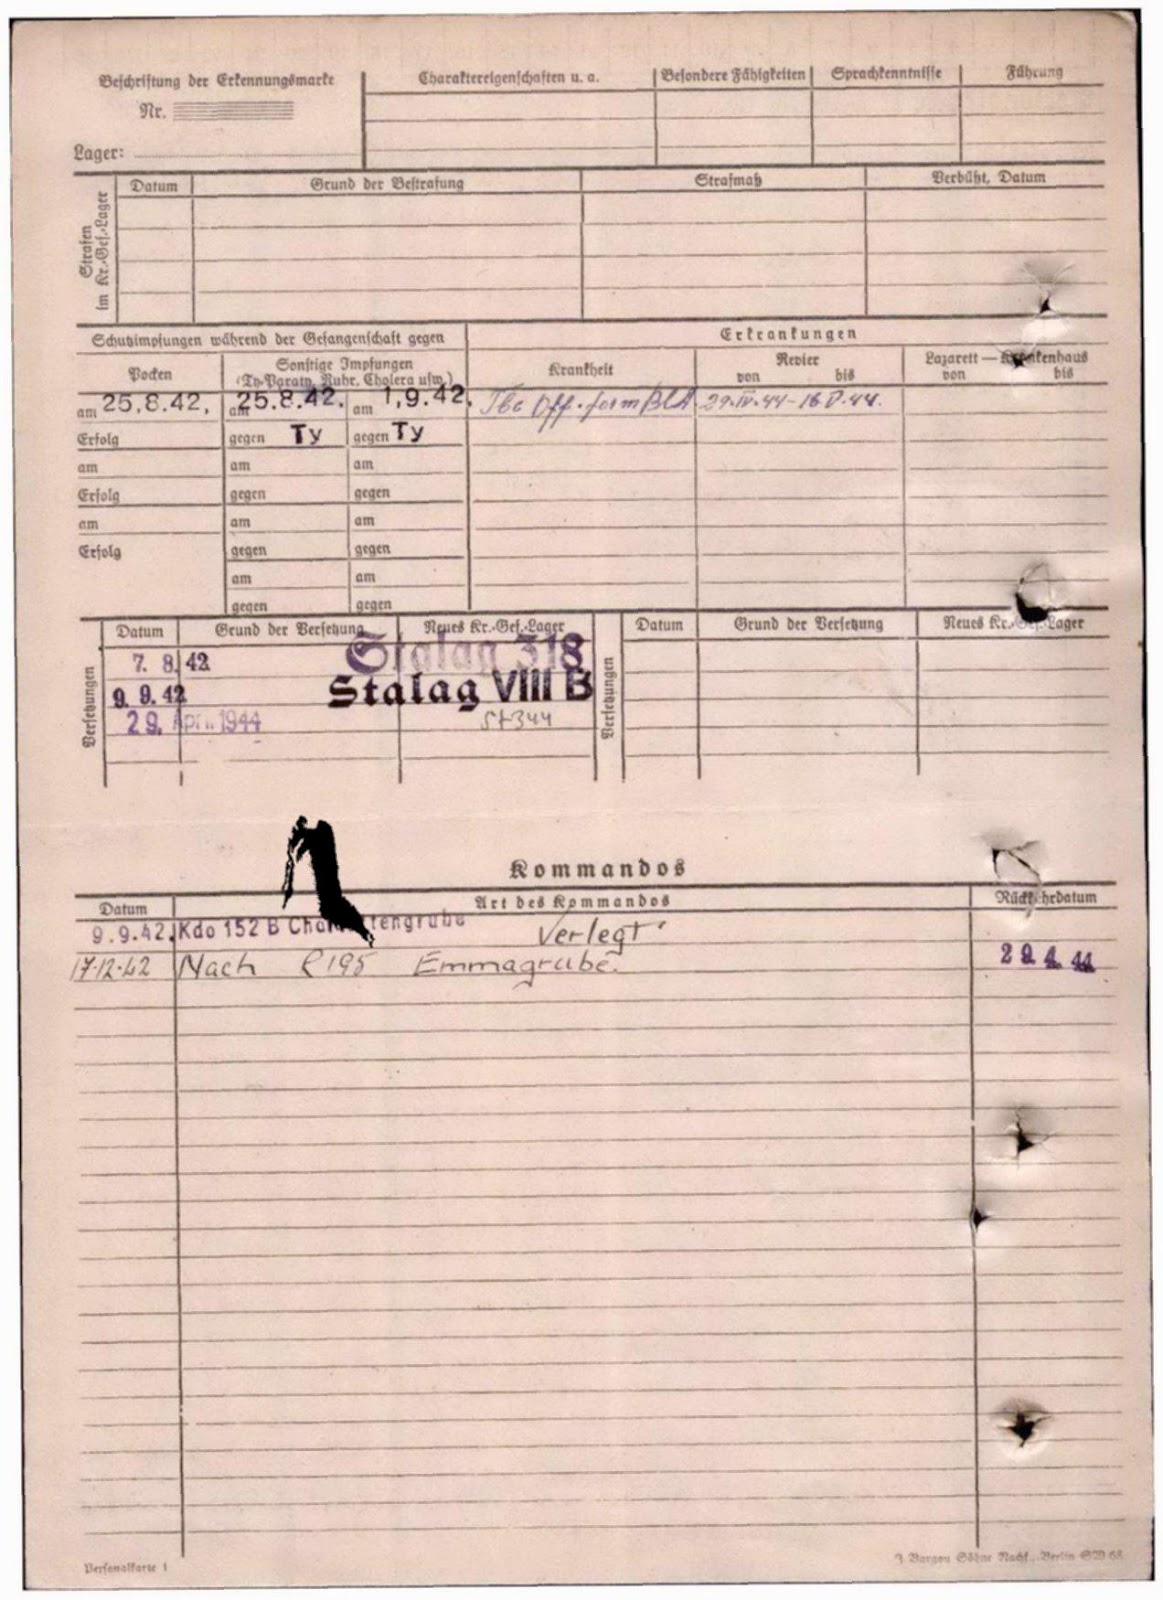 Beschriftung der Erkennungsmarke
Nr.
Lager:
Charaktereigenschaften u. a. Besondere Fähigkeiten Sprachkenntnisse Führung
Strafen im Kr.-Gef.-Lager
Datum Grund der Bestrafung Strafmaß Verbüßt, Datum
Schutzimpfungen während der Gefangenschaft gegen Erkrankungen
Pocken Sonstige Impfungen Krankheit Revier Lazarett — Krankenhaus
(Ty-Paraty, Ruhr, Cholera usw.) von bis von bis
am 25.8.42. am 25.8.42. am 1.9.42. Tbc Off. form BLA 29.IV.44-16.V.44.
Erfolg gegen Ty gegen Ty
am am am
Erfolg gegen gegen
am am am
Erfolg gegen gegen
am am
gegen gegen
Versetzungen
Datum Grund der Versetzung Neues Kr.-Gef.-Lager
7. 8. 42 Stalag 318
9. 9. 42 Stalag VIII B
29. April 1944 St 344
Versetzungen
Datum Grund der Versetzung Neues Kr.-Gef.-Lager
Kommandos
Datum Art des Kommandos Rückkehrdatum
9.9.42. Kdo 152 B tengrube Verlegt
17.12.42 Nach E195 Emmagrube. 29.4.44
Personalkarte I
J. Bargou Söhne Nachf., Berlin SW 68